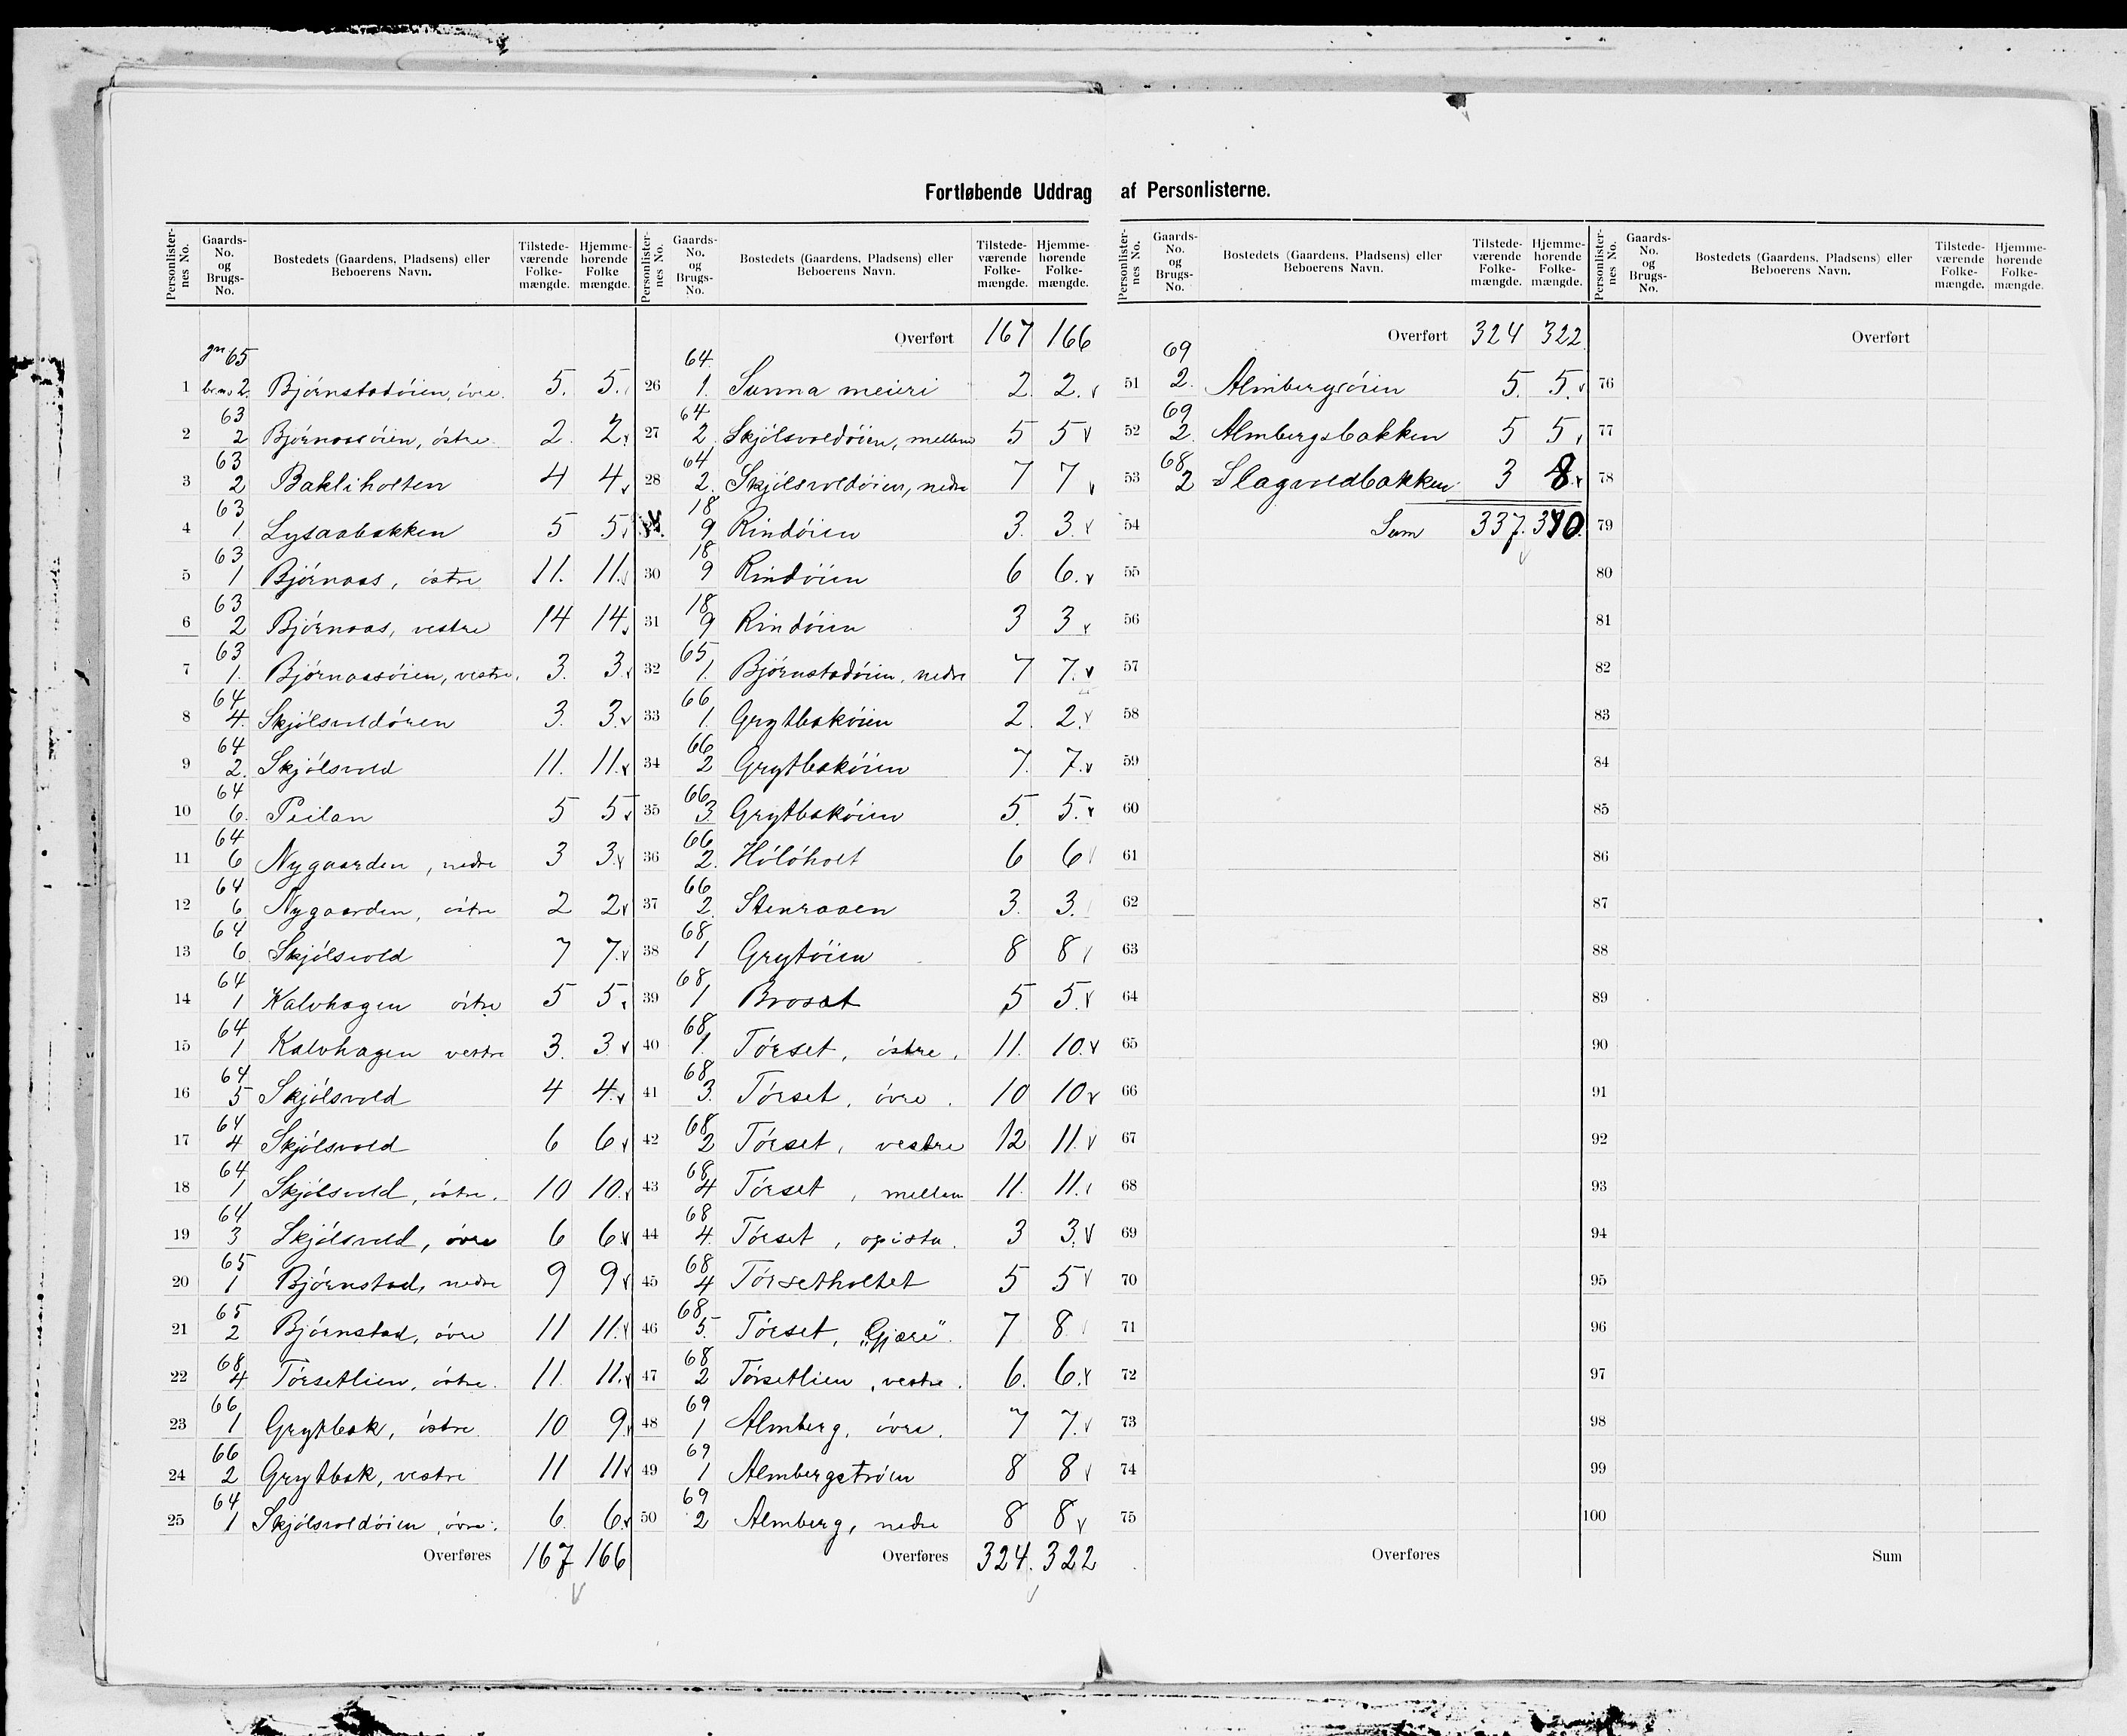 Fortløbende Uddrag af Personlisterne.
Personlisternes No. Gaards-No. og Brugs-No. Bostedets (Gaardens, Pladsens) eller Beboerens Navn. Tilstedeværende Folkemængde. Hjemmehørende Folkemængde.
gn 65
1 brno 2. Bjórnstadóien, óvre. 5. 5.
63
2 2 Bjórnaasóien, óstre. 2. 2.
63
3 2 Bakliholten 4 4
63
4 1 Lysaabakken 5 5
63
5 1 Bjórnaas, óstre 11. 11.
63
6 2 Bjórnaas, vestre 14 14
63
7 1. Bjórnaasóien, vestre. 3. 3
64
8 4. Skjólsvoldóien 3. 3.
64
9 2. Skjólsvold 11. 11.
64
10 6. Peilan 5 5
64
11 6 Nygaarden, nedre 3 3.
64
12 6 Nygaarden, óstre 2 2
64
13 6 Skjólsvold 7 7.
64
14 1 Kalvhagen óstre 5 5.
64
15 1 Kalvhagen vestre 3. 3
64
16 5 Skjólsvold 4 4.
64
17 4 Skjólsvold 6 6
64
18 1 Skjólsvold, óstre. 10 10.
64
19 3 Skjólsvold, óvre 6 6
65
20 1 Bjórnstad, nedre 9 9
65
21 2 Bjórnstad, óvre 11 11.
68
22 4 Tórsetlien, óstre. 11. 11.
66
23 1 Grytbak, óstre 10 9
66
24 2 Grytbak, vestre 11 11
64
25 1 Skjólsvoldóien, óvre. 6 6
Overføres 167 166
Personlisternes No. Gaards-No. og Brugs-No. Bostedets (Gaardens, Pladsens) eller Beboerens Navn. Tilstedeværende Folkemængde. Hjemmehørende Folkemængde.
Overført 167 166
64
26 1. Sunna meieri 2. 2.
64
27 2 Skjólsvoldóien, mellem 5 5
64
28 2. Skjólsvoldóien, nedre 7 7
18
9 Rindóien 3. 3.
18
30 9 Rindóien 6 6.
18
31 9 Rindóien 3 3
65
32 1. Bjórnstadóien, nedre 7 7.
66
33 1. Grytbakóien 2. 2.
66
34 2 Grytbakóien 7. 7.
66
35 3. Grytbakóien 5. 5.
66
36 2. Hólóholt 6 6
66
37 2. Stenraaen 3. 3.
68
38 1 Grytóien 8 8
68
39 1 Brosat 5 5.
68
40 1. Tórset, óstre. 11. 10.
68
41 3. Tórset, óvre. 10 10
68
42 2 Tórset, vestre 12 11.
68
43 4 Tórset, mellem 11. 11.
68
44 4. Tórset, opista. 3 3.
68
45 4 Tórsetholtet 5 5
68
46 5. Tórset, „Gjære". 7 8
68
47 2 Tórsetlien, vestre. 6. 6.
69
48 1 Almberg, óvre. 7 7.
69
49 1 Almbergstróien 8 8
69
50 2 Almberg, nedre 8 8
Overføres 324. 322
Personlisternes No. Gaards-No. og Brugs-No. Bostedets (Gaardens, Pladsens) eller Beboerens Navn. Tilstedeværende Folkemængde. Hjemmehørende Folkemængde.
Overført 324 322
69
51 2. Almbergsóien 5. 5.
69
52 2. Almbergsbakken 5 5
68
53 2 Slagvoldbakken 3 8
54 Sum 337.
55
56
57
58
59
60
61
62
63
64
65
66
67
68
69
70
71
72
73
74
75
Overføres
Personlisternes No. Gaards-No. og Brugs-No. Bostedets (Gaardens, Pladsens) eller Beboerens Navn. Tilstedeværende Folkemængde. Hjemmehørende Folkemængde.
Overført
76
77
78
79
80
81
82
83
84
85
86
87
88
89
90
91
92
93
94
95
96
97
98
99
100
Sum